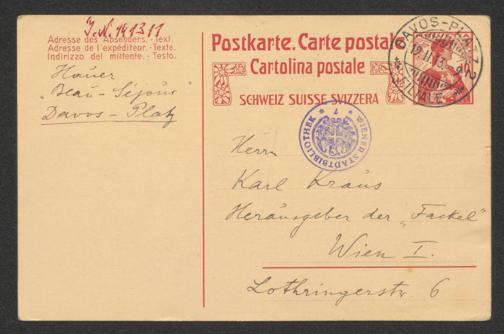 J.N. 141311
Adresse des Absenders. - Text.
Adresse de l'expéditeur. - Texte.
Indirizzo del mittente. - Testo.
Hauer
"Beau-Séjour"
Davos-Platz
Postkarte. Carte postale.
Cartolina postale
SCHWEIZ SUISSE SVIZZERA
DAVOS-PLATZ 2
FILIALE
WIENER STADTBIBLIOTHEK
Herrn
Karl Kraus
Herausgeber der „Fackel"
Wien I.
Lothringerstr 6